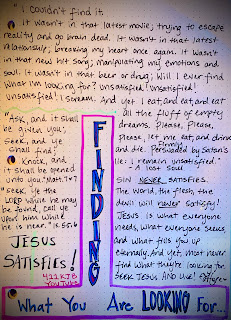 "I couldn't find it.
It wasn't in that latest movie; trying to escape
reality and go brain dead. It wasn't in that latest
relationship; breaking my heart once again. It wasn't
in that new hit song; manipulating my emotions and
soul. It wasn't in that beer or drug; Will I ever find
what I'm looking for? Unsatisfied! Unsatisfied!
Unsatisfied! I scream. And yet I eat and eat, and eat
all the fluff of empty
dreams. Please, Please
please, let me eat, and drink
and die. Firmly
Persuaded by Satan's
lie: I remain unsatisfied."
- A lost soul
"Ask, and it shall
be given you;
Seek, and ye
shall find;
Knock, and
it shall be opened
unto you." Matt. 7:7
"Seek ye the
LORD while he may
be found, call ye
upon him while
he is near." Is. 55:6
JESUS
SATISFIES!
YouTube
FINDING
SIN NEVER SATISFIES.
The World, the flesh, the
devil will never satisfy!
JESUS is what everyone
needs, what everyone seeks
and what fills you up
eternally. And yet, most never
find what they're looking for.
SEEK JESUS AND live!
What You Are LOOKING For...